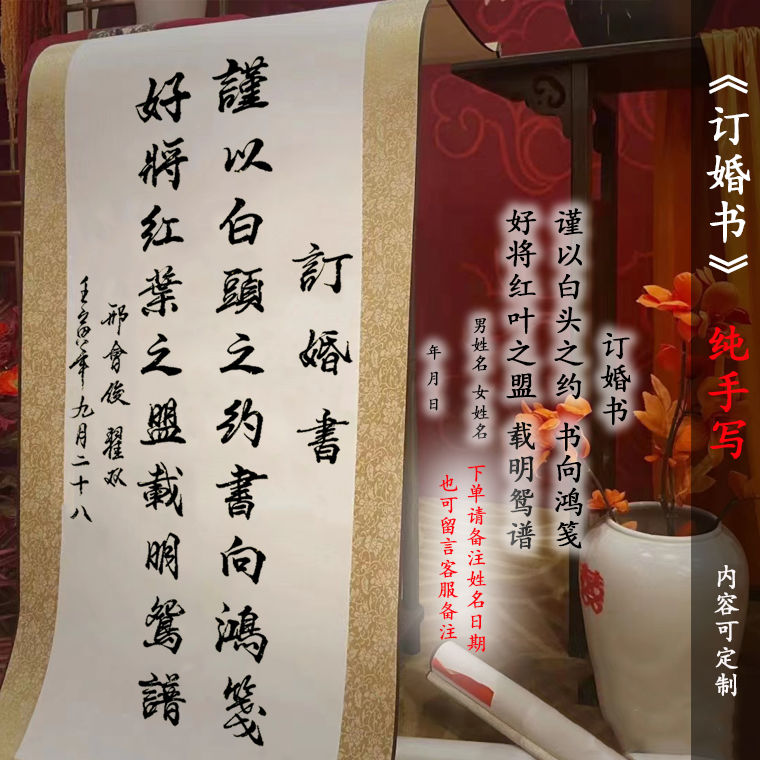 訂婚書
謹以白頭之約書向鴻箋
好將红葉之盟載明鴛譜
邢會俊 翟双
年九月二十八
《订婚书》
纯手写
内容可定制
订婚书
谨以白头之约 书向鸿笺
好将红叶之盟 载明鸳谱
男姓名 女姓名
年月日
下单请备注姓名日期
也可留言客服备注